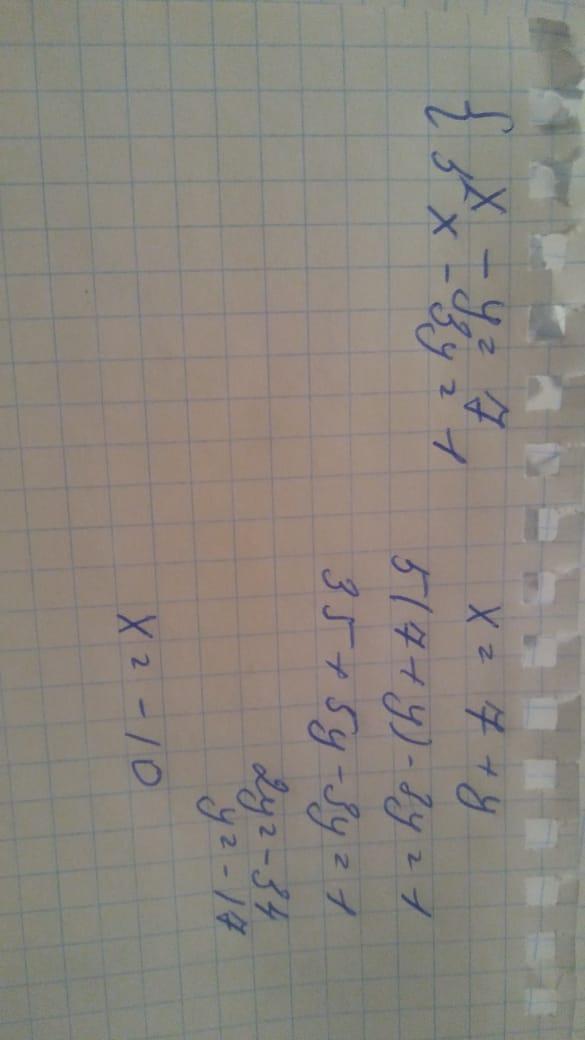 { x - y = 7
5x - 3y = 1
x = 7 + y
5(7 + y) - 3y = 1
35 + 5y - 3y = 1
2y = -34
y = -17
x = -10